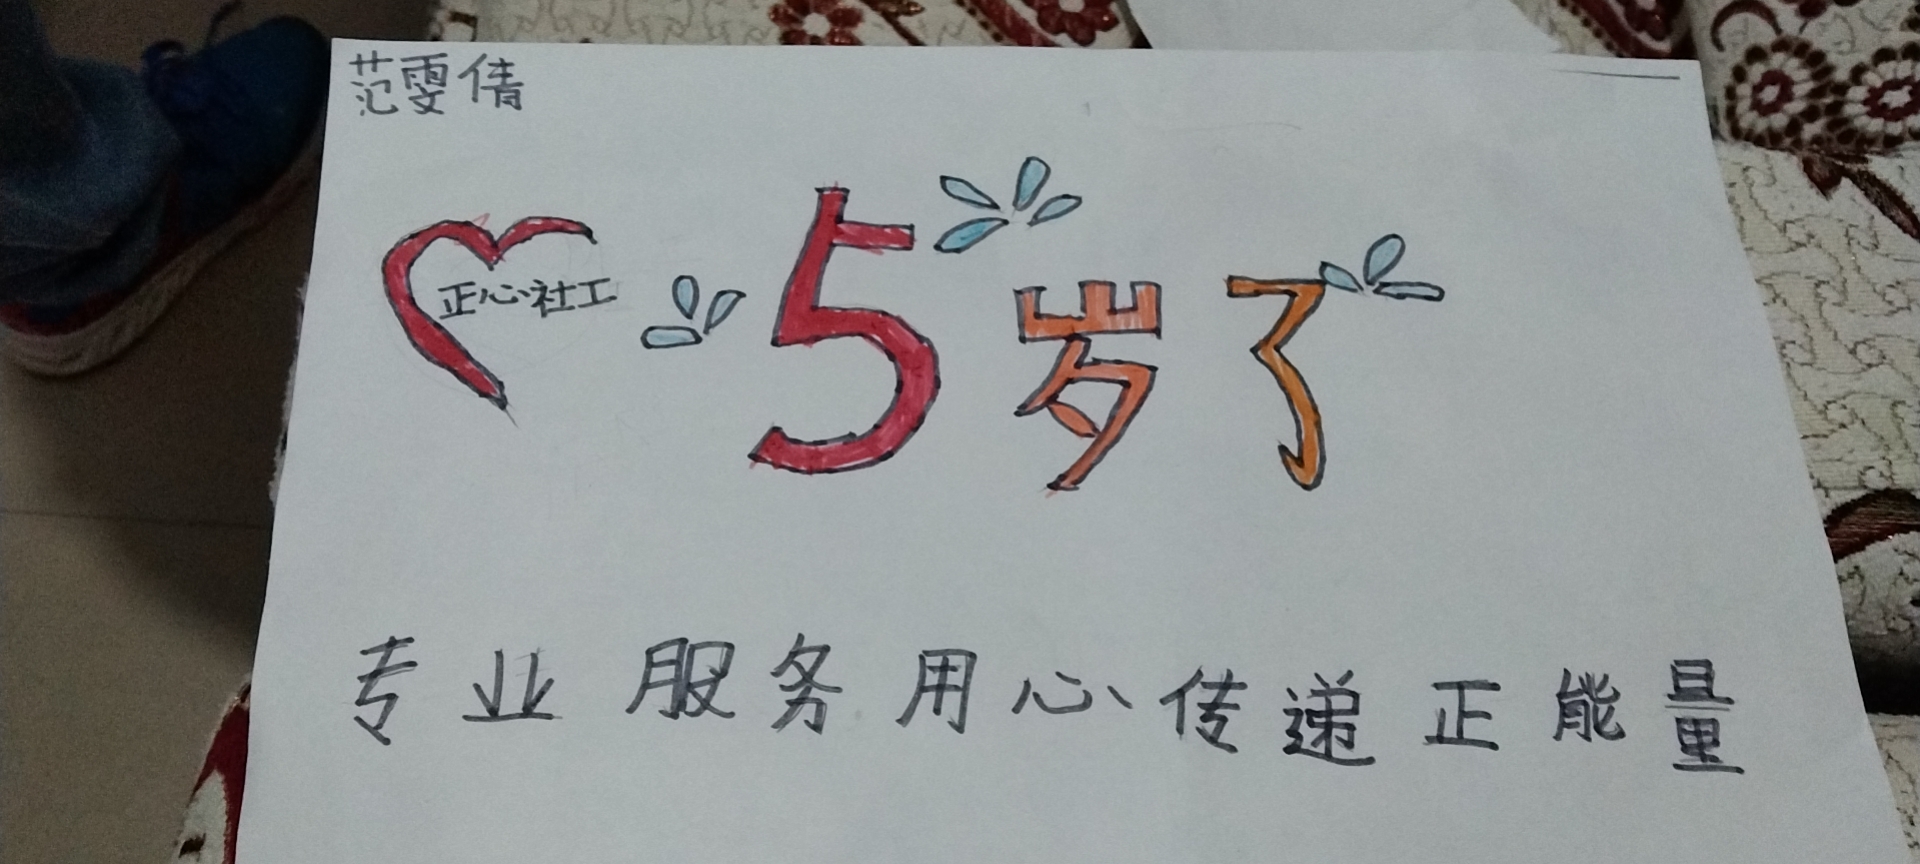 范雯倩
正心社工
5岁了
专业服务用心传递正能量